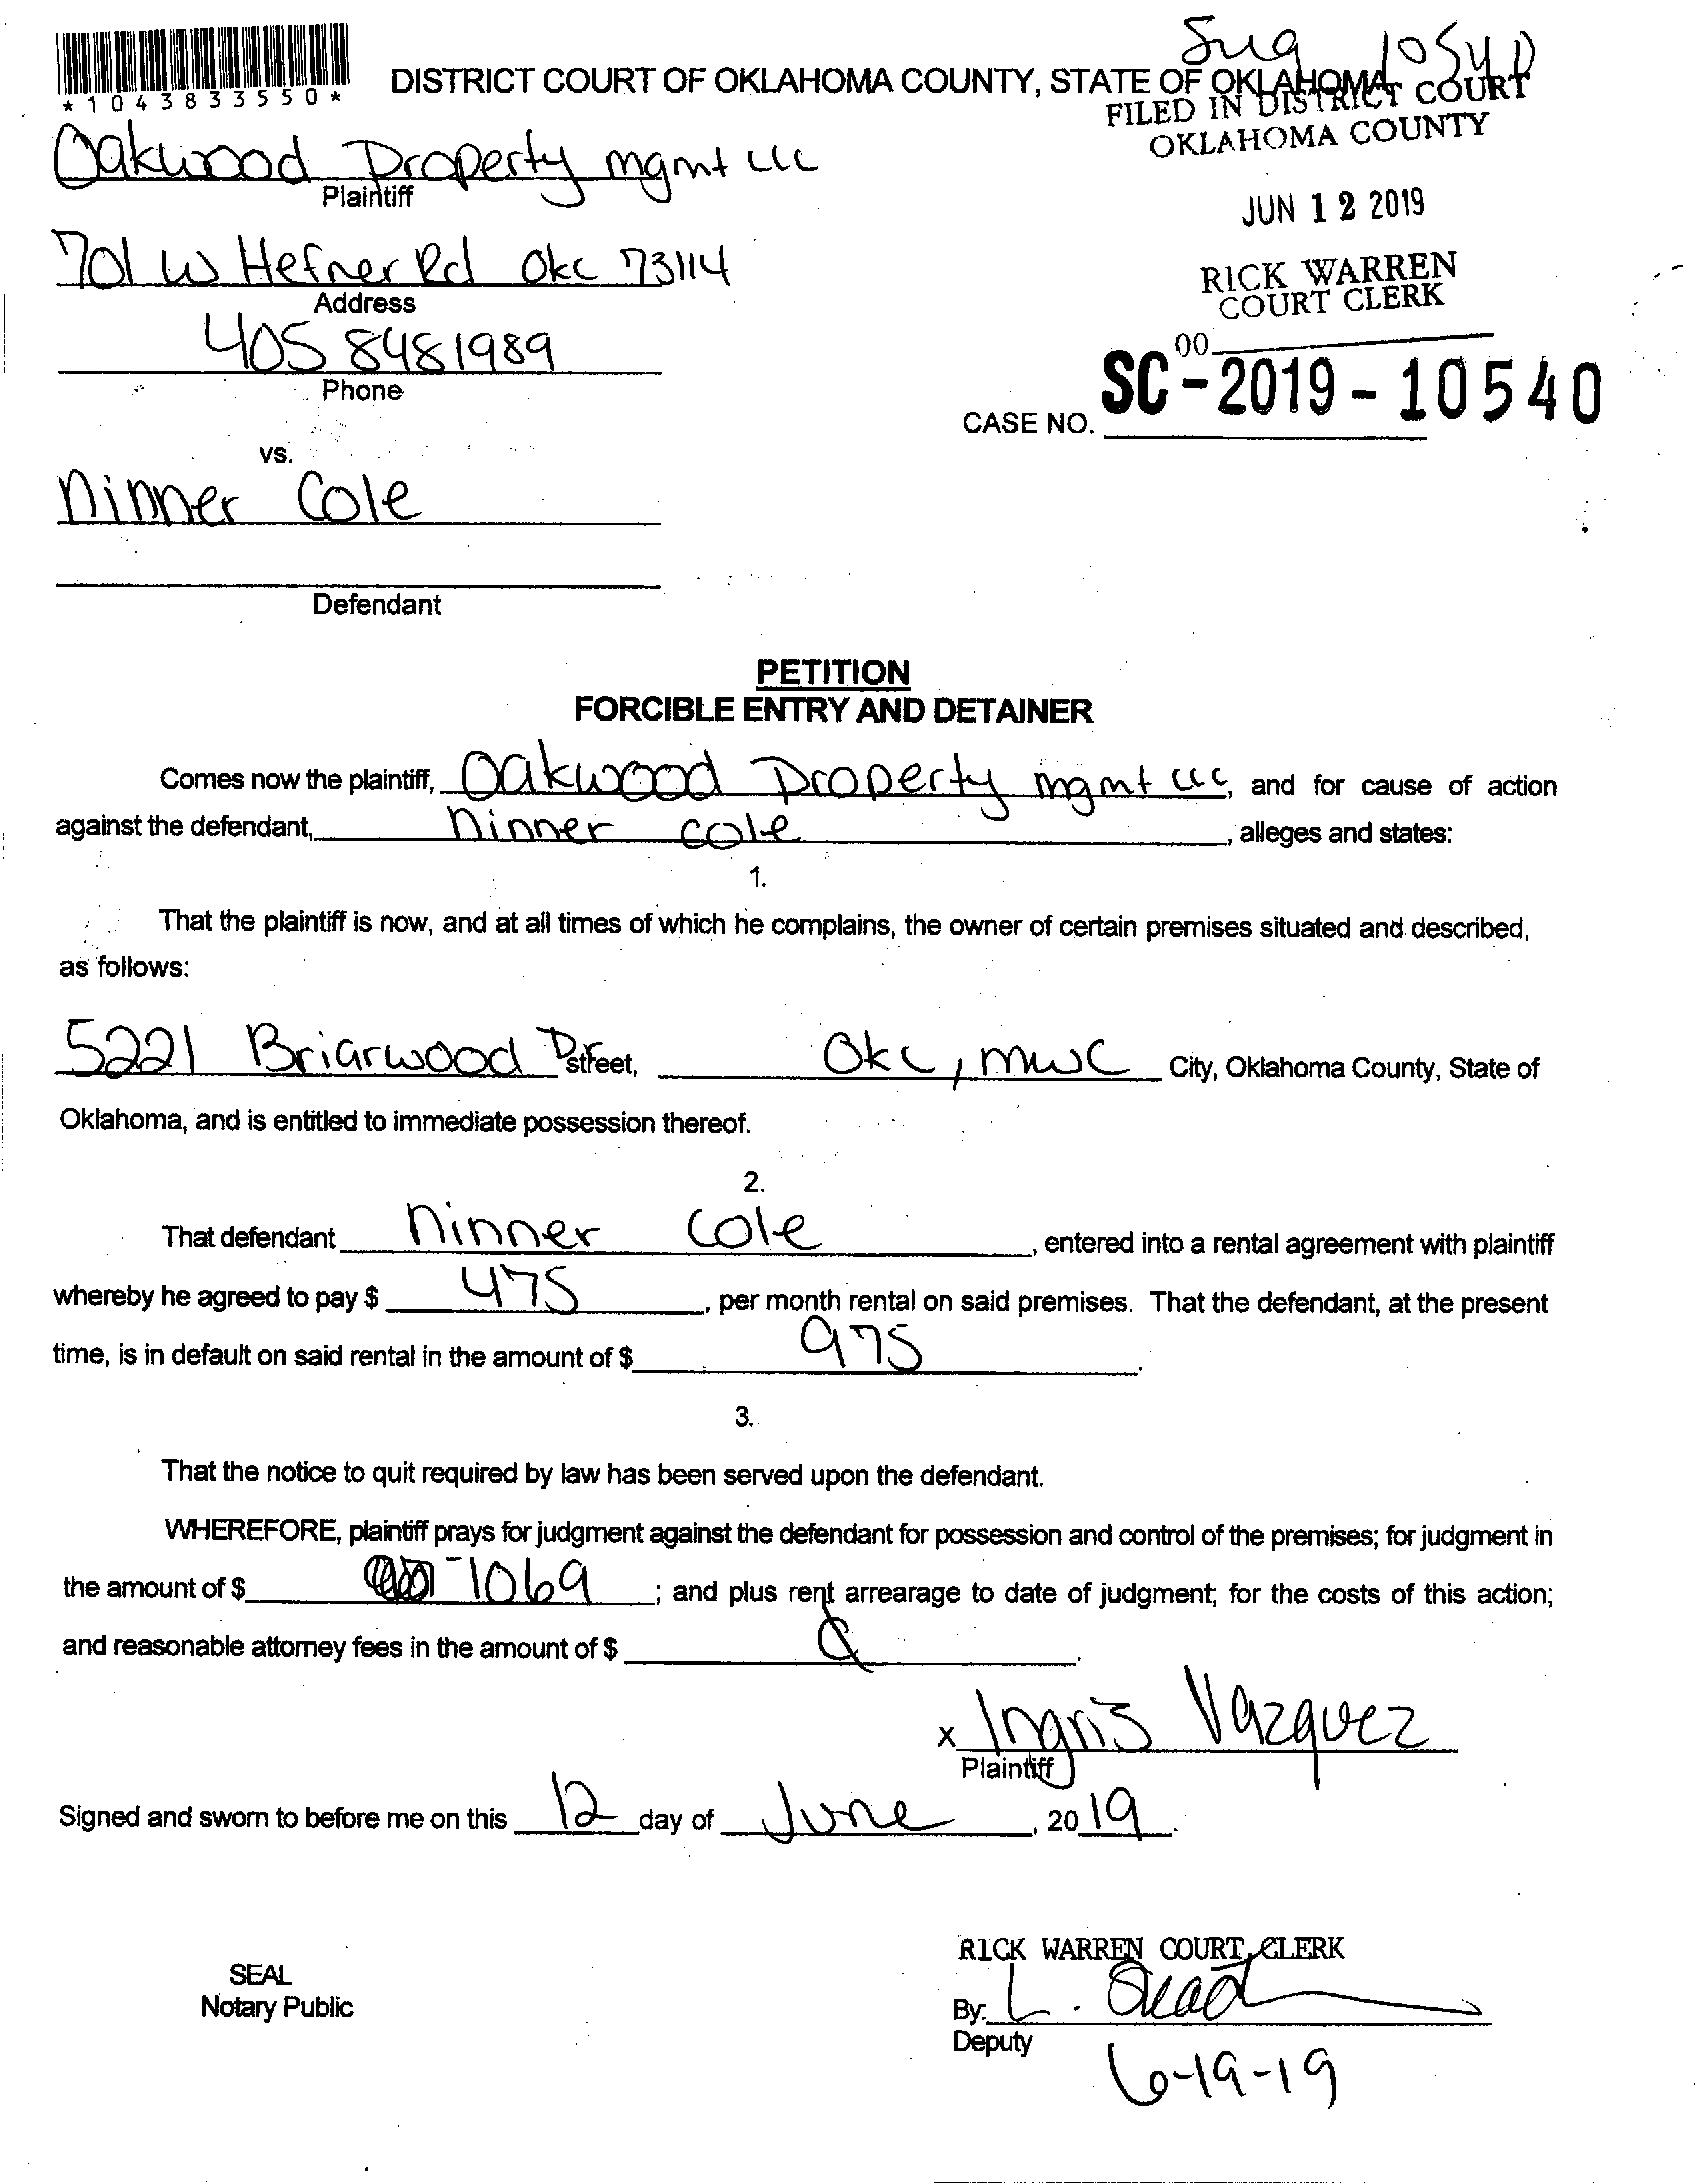 *1043833550*
DISTRICT COURT OF OKLAHOMA COUNTY, STATE OF OKLAHOMA
10540
FILED IN DISTRICT COURT
OKLAHOMA COUNTY
Oakwood Property mgmt LLC
Plaintiff
JUN 12 2019
701 W Hefner Rd Okc 73114
Address
RICK WARREN
COURT CLERK
405 8481989
Phone
00
CASE NO. SC-2019-10540
vs.
Ninner Cole
Defendant
PETITION
FORCIBLE ENTRY AND DETAINER
Comes now the plaintiff, Oakwood Property mgmt LLC, and for cause of action
against the defendant, Ninner Cole, alleges and states:
1.
That the plaintiff is now, and at all times of which he complains, the owner of certain premises situated and described,
as follows:
5221 Briarwood Dr street, Okc, mwc City, Oklahoma County, State of
Oklahoma, and is entitled to immediate possession thereof.
2.
That defendant Ninner Cole, entered into a rental agreement with plaintiff
whereby he agreed to pay $ 475, per month rental on said premises. That the defendant, at the present
time, is in default on said rental in the amount of $ 975.
3.
That the notice to quit required by law has been served upon the defendant.
WHEREFORE, plaintiff prays for judgment against the defendant for possession and control of the premises; for judgment in
the amount of $ 1069; and plus rent arrearage to date of judgment; for the costs of this action;
and reasonable attorney fees in the amount of $
x Ingris Vazquez
Plaintiff
Signed and sworn to before me on this 12 day of June, 2019.
RICK WARREN COURT CLERK
SEAL
Notary Public
By: L.
Deputy
6-19-19